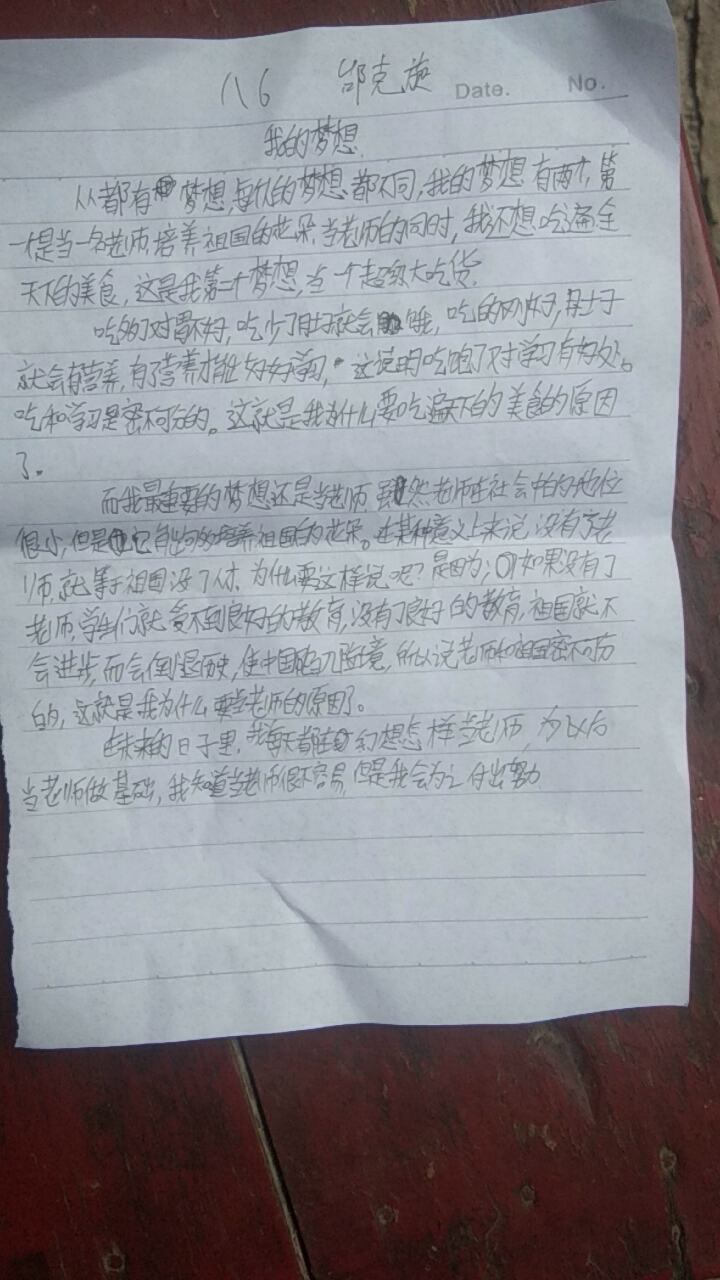 八6 邰克旋 Date. No.
我的梦想
人人都有梦想,每个人的梦想都不同,我的梦想有两个,第
一个是当一名老师,培养祖国的花朵,当老师的同时,我还想吃遍全
天下的美食,这是我第二个梦想,当一个超级大吃货.
吃多了对胃不好,吃少了肚子就会饿,吃的刚好,肚子
就会有营养,有了营养才能好好学习,这说明吃饱了对学习有好处。
吃和学习是密不可分的。这就是我为什么要吃遍天下的美食的原因
了。
而我最重要的梦想还是当老师,虽然老师在社会中的地位
很小,但是它能够培养祖国的花朵。在某种意义上来说,没有了老
师,就等于祖国没了人才,为什么要这样说呢?是因为;如果没有了
老师,学生们就受不到良好的教育,没有了良好的教育,祖国就不
会进步,而会倒退历史,使中国陷入险境,所以说老师和祖国密不可分
的,这就是我为什么要当老师的原因了。
在未来的日子里,我每天都在幻想怎样当老师,为以后
当老师做基础,我知道当老师很不容易,但是我会为之付出努力